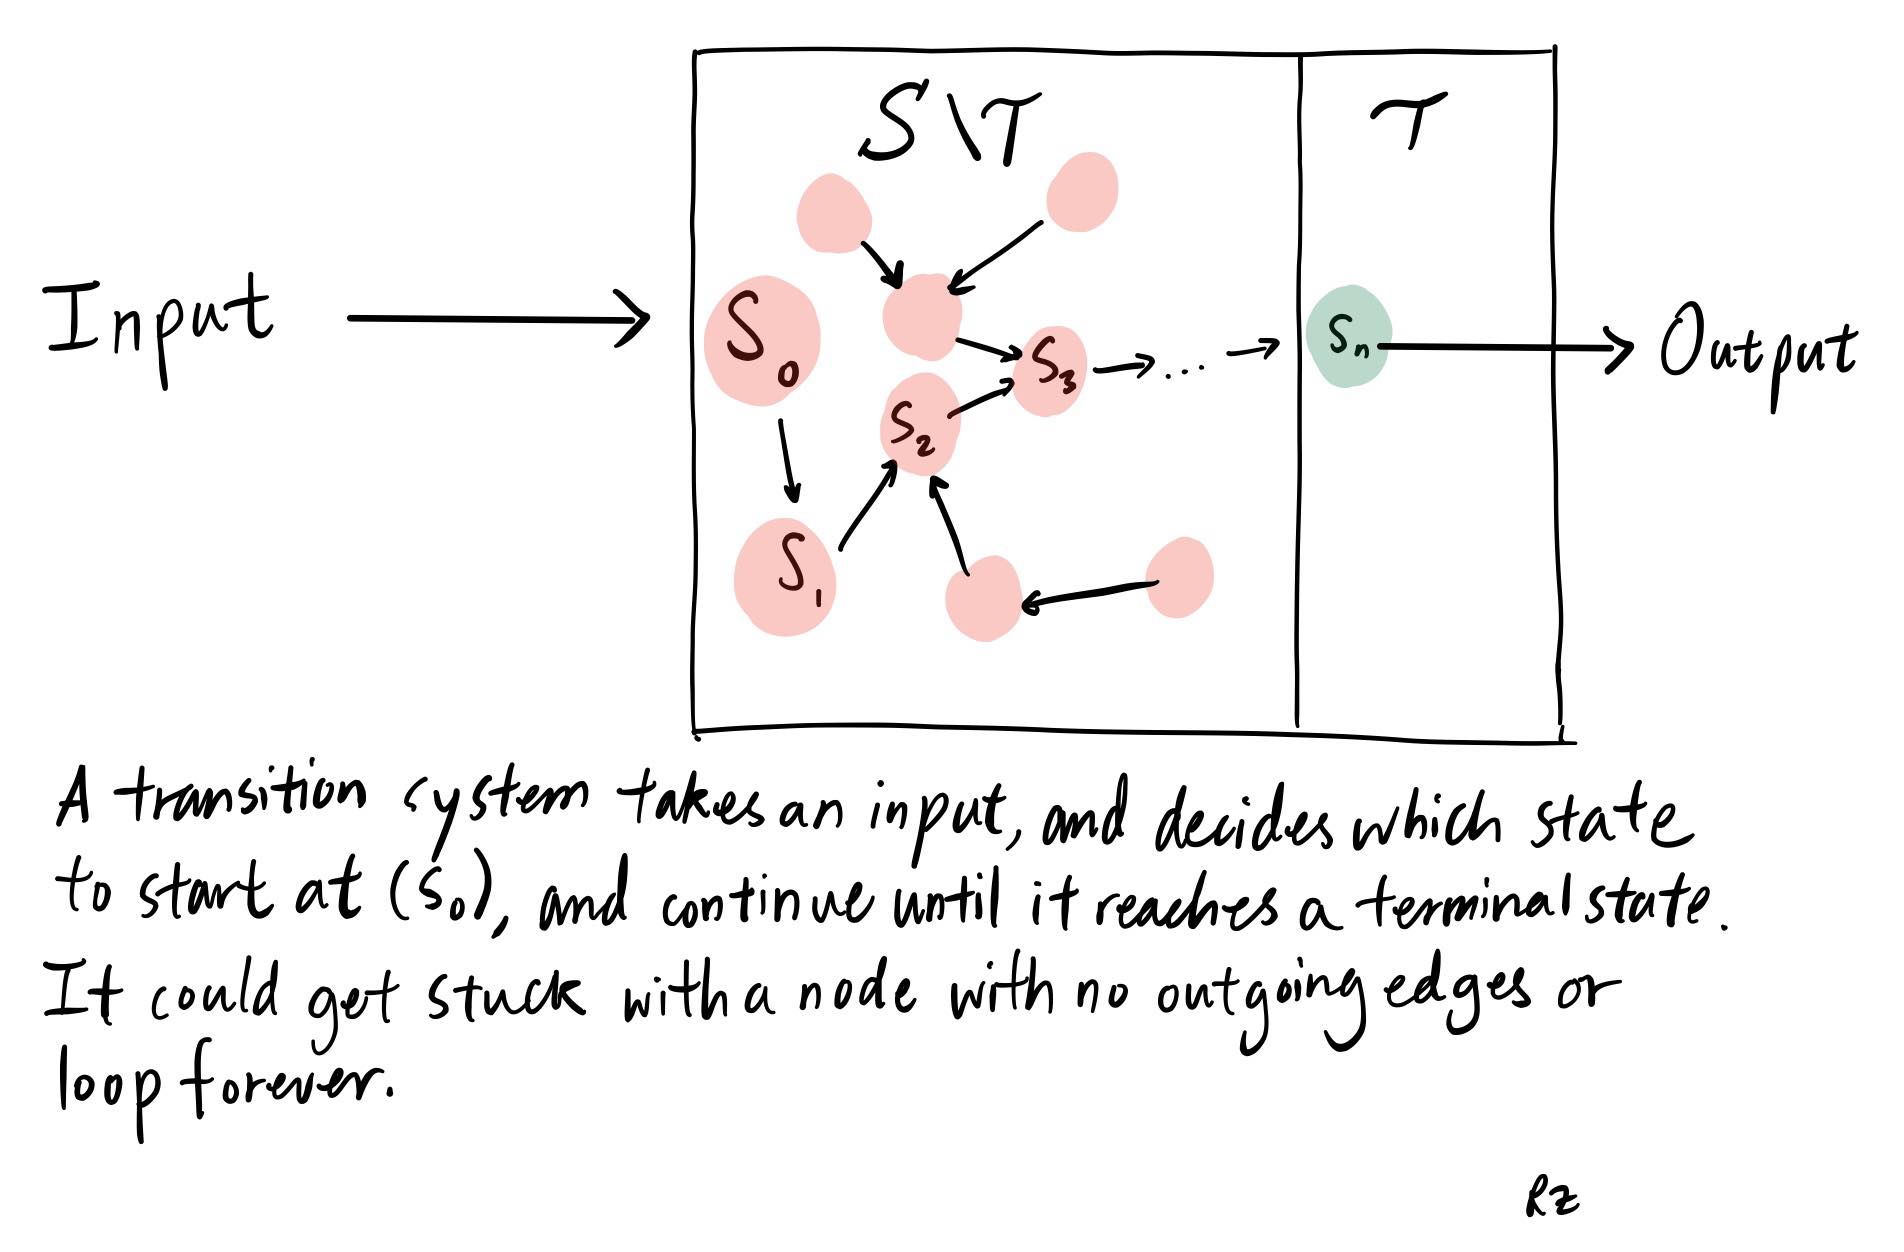 S\T
T
Input
S₀
S₃
...
Sn
Output
S₂
S₁
A transition system takes an input, and decides which state
to start at (S₀), and continue until it reaches a terminal state.
It could get stuck with a node with no outgoing edges or
loop forever.
RZ